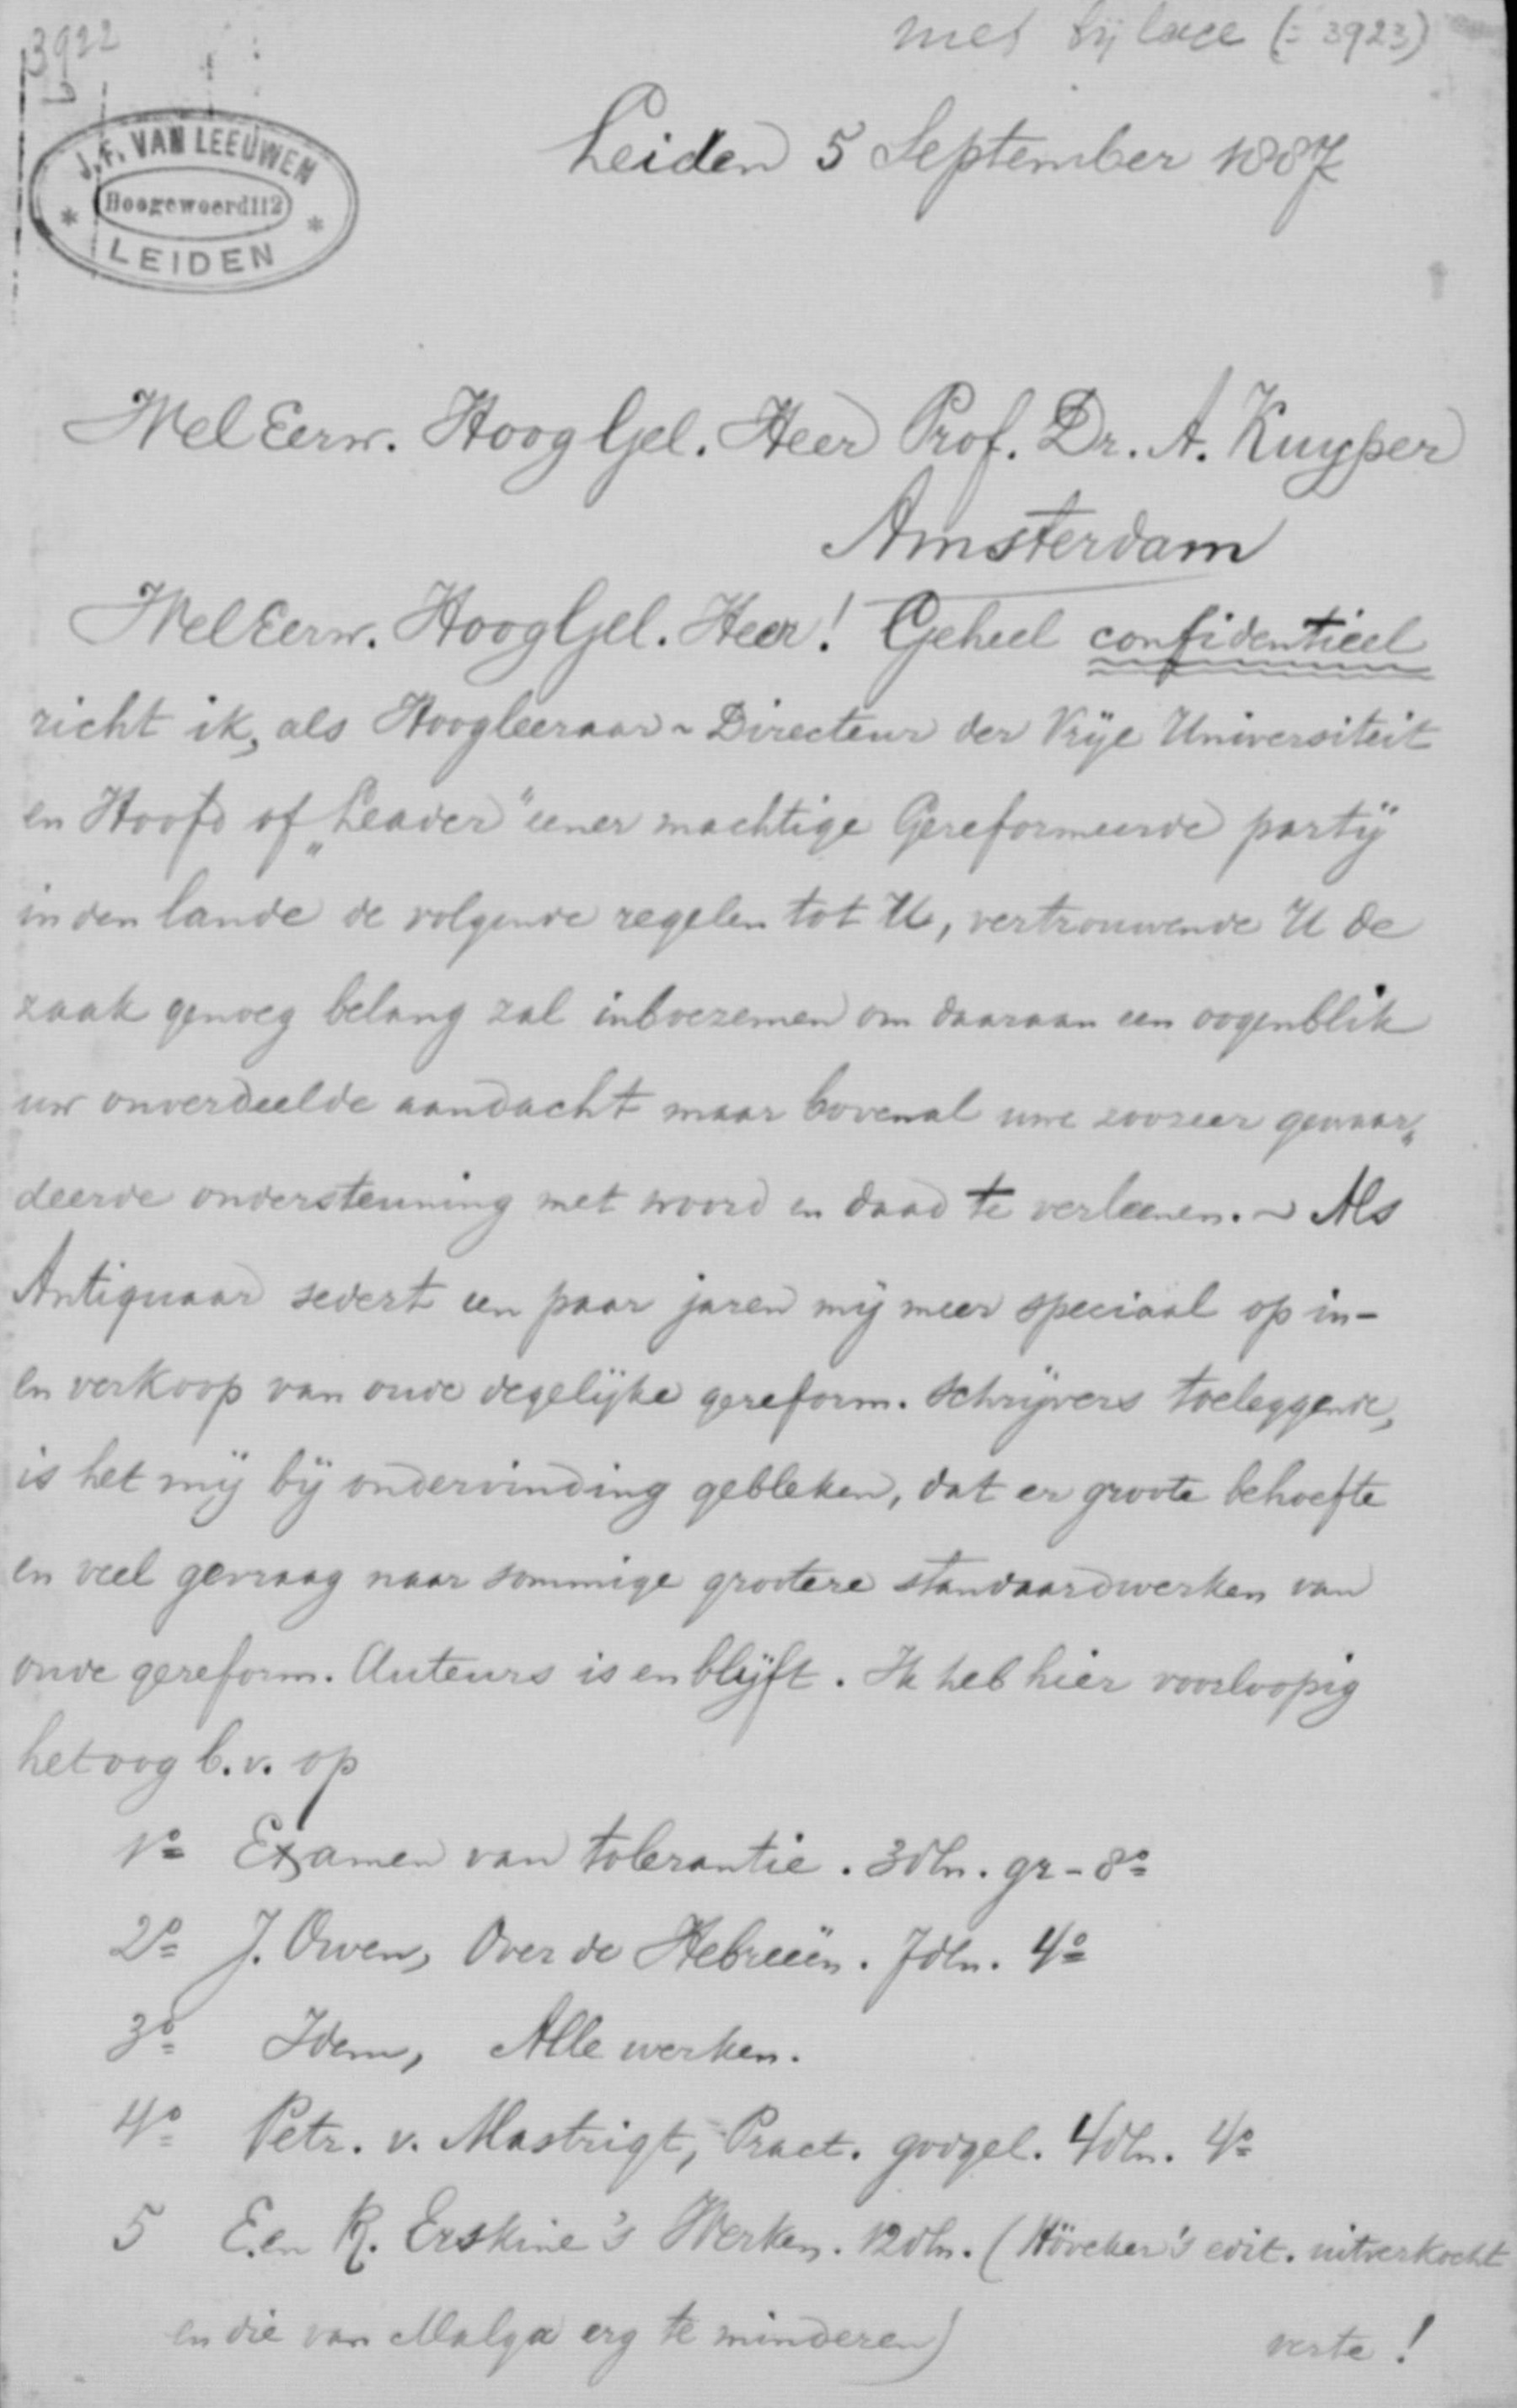 3922
met bijlage (= 3923)
J. F. VAN LEEUWEN
Hoogewoerd 112
LEIDEN
Leiden 5 September 1887
WelEerw. HoogGel. Heer Prof. Dr. A. Kuyper
Amsterdam
WelEerw. HoogGel. Heer! Geheel confidentieel
richt ik, als Hoogleeraar-Directeur der Vrije Universiteit
en Hoofd of „Leader" eener machtige Gereformeerde partij
in den lande de volgende regelen tot U, vertrouwende U de
zaak genoeg belang zal inboezemen om daaraan een oogenblik
uw onverdeelde aandacht maar bovenal uwe zoozeer gewaar„
deerde ondersteuning met woord en daad te verleenen. ~ Als
Antiquaar sedert een paar jaren mij meer speciaal op in-
en verkoop van oude degelijke gereform. schrijvers toeleggende,
is het mij bij ondervinding gebleken, dat er groote behoefte
en veel gevraag naar sommige grootere standaardwerken van
oude gereform. Auteurs is en blijft. Ik heb hier voorloopig
het oog b.v. op
1o Examen van tolerantie. 3 dln. gr-8o
2o J. Owen, Over de Hebreeën. 7 dln. 4o
3o Idem, Alle werken.
4o Petr. v. Mastrigt, Pract. godgel. 4 dln. 4o
5 E. en R. Erskine's Werken. 12 dln. (Höveker's edit. uitverkocht
en die van Malga erg te minderen)
verte!